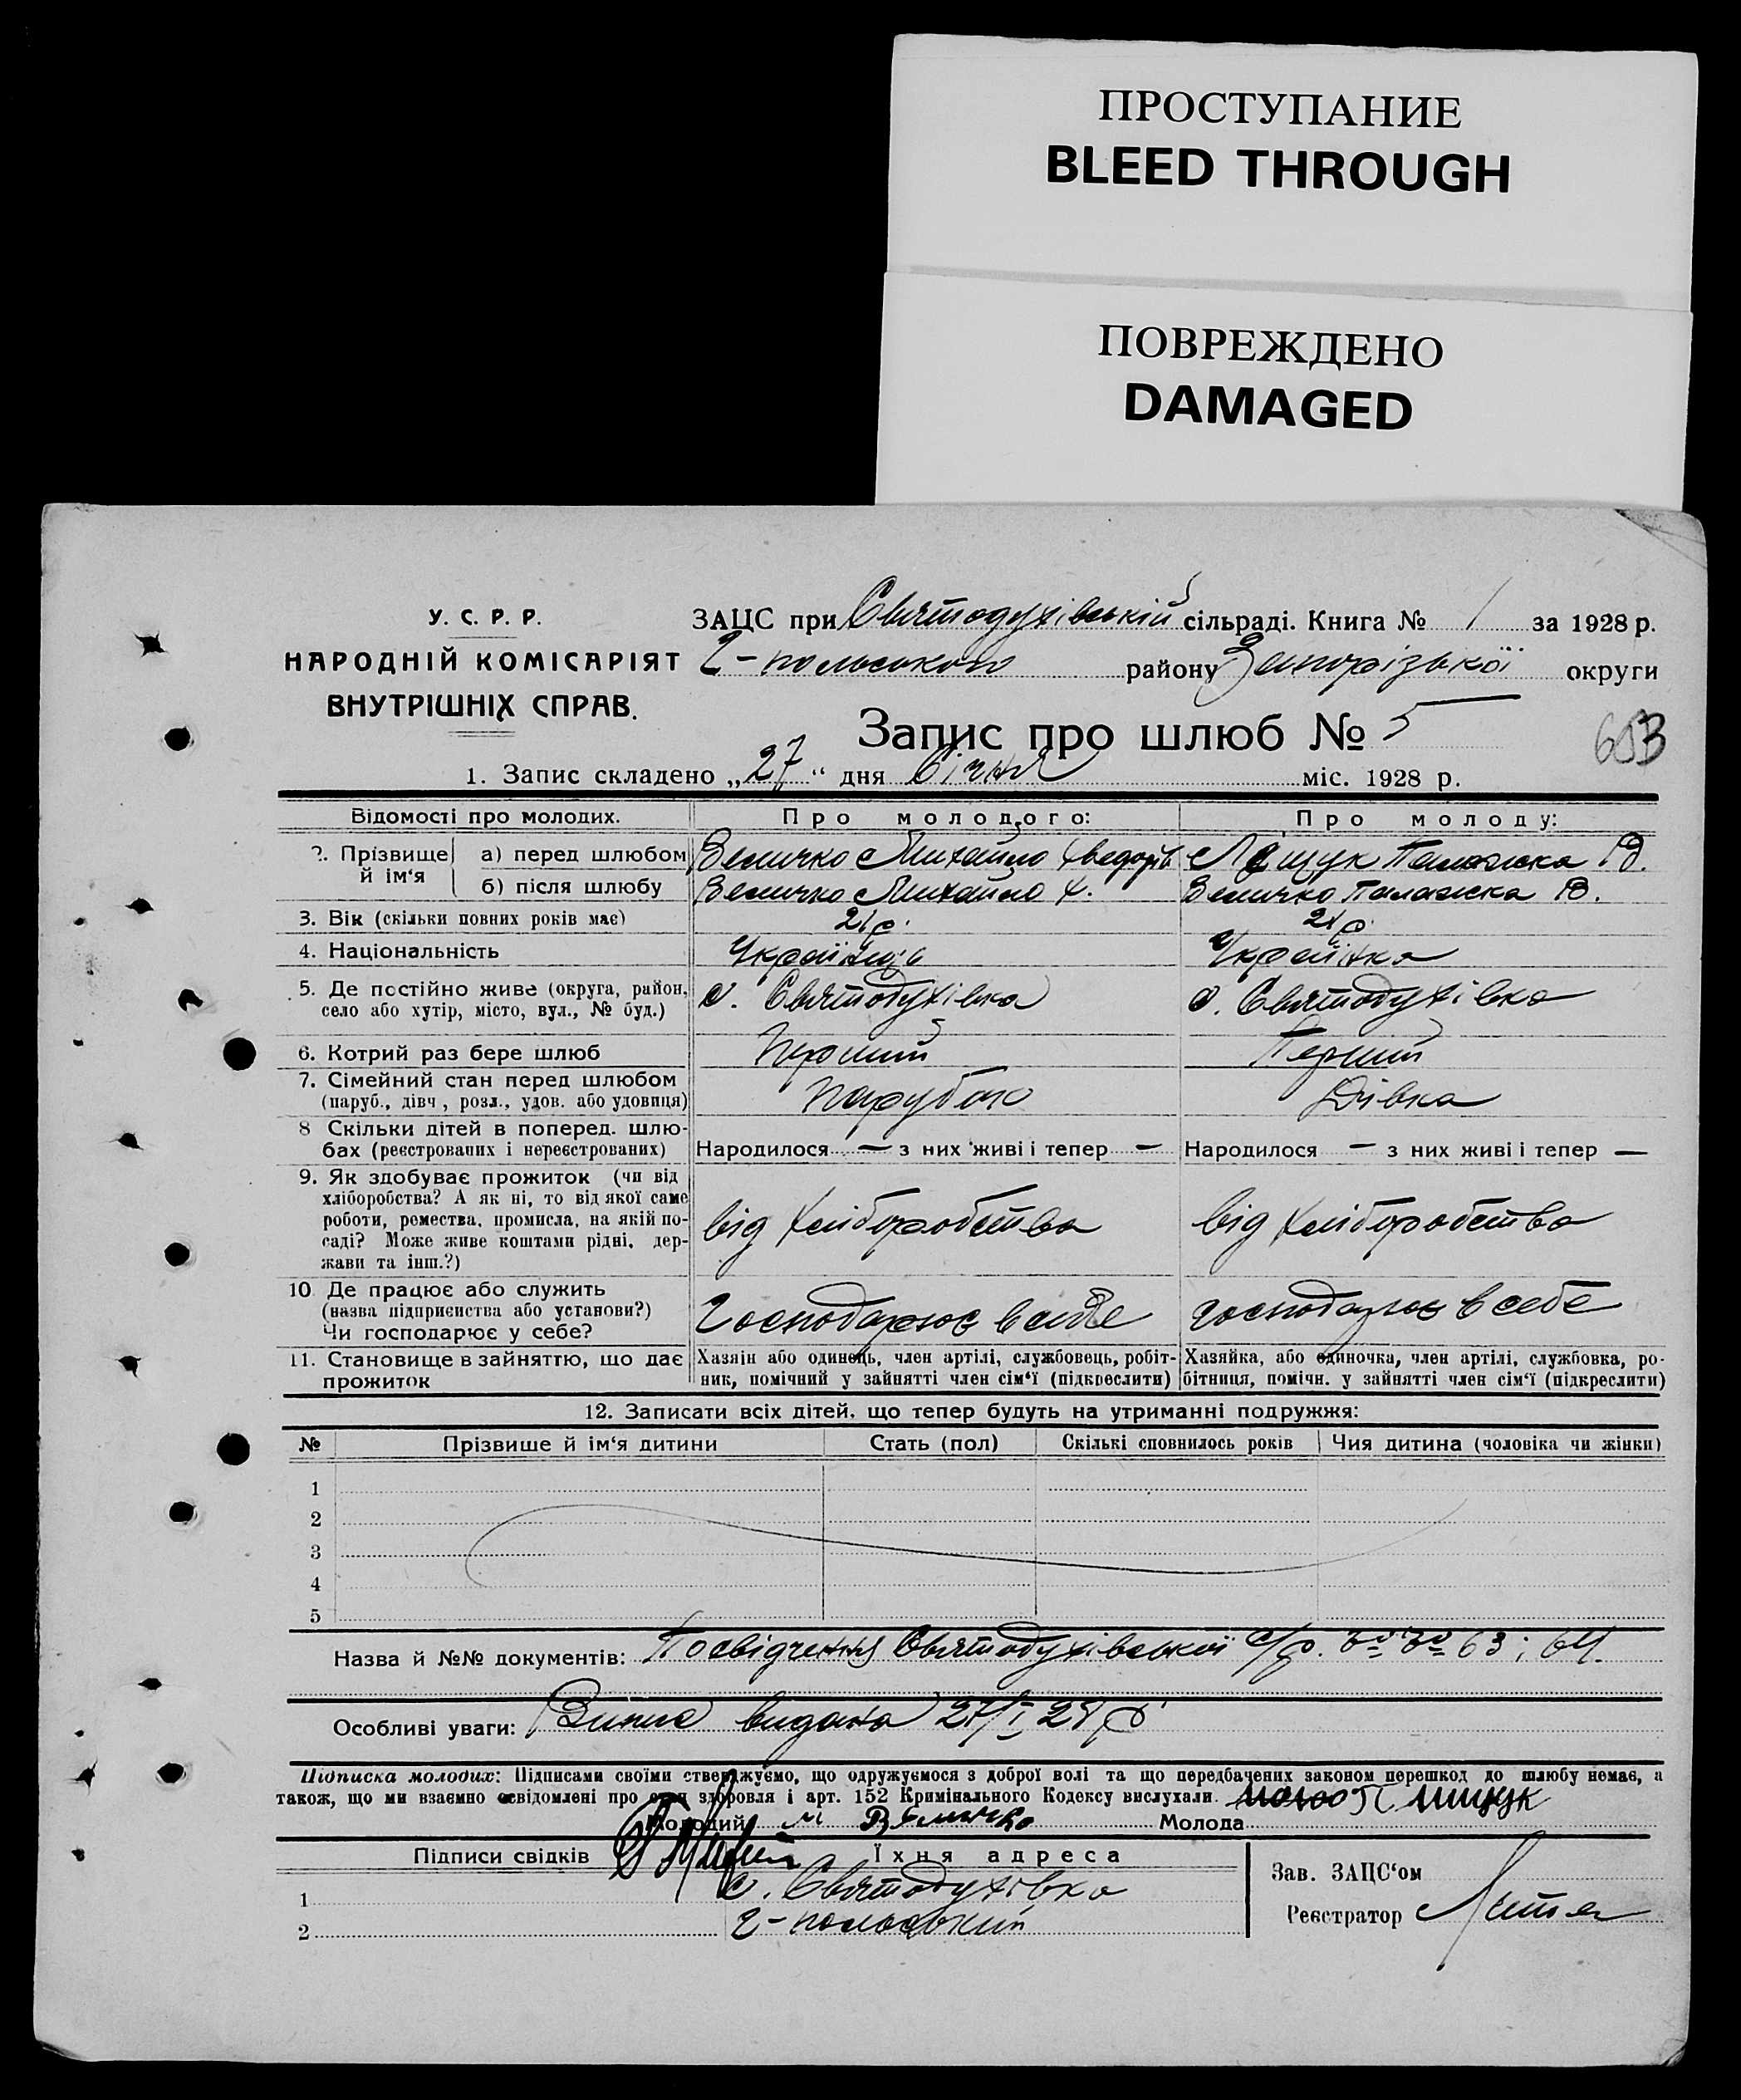 ПРОСТУПАНИЕ
BLEED THROUGH
ПОВРЕЖДЕНО
DAMAGED
У. С. Р. Р.
НАРОДНІЙ КОМІСАРІЯТ
ВНУТРІШНІХ СПРАВ.
ЗАЦС при Святодухівській сільраді. Книга № 1 за 1928 р.
Г-польського району Запорізької округи
Запис про шлюб № 5
653
1. Запис складено „27“ дня Січня міс. 1928 р.
Відомості про молодих. Про молодого: Про молоду:
2. Прізвище й ім‘я
а) перед шлюбом Величко Михайло Хведорів Лящук Палажка В.
б) після шлюбу Величко Михайло Х. Величко Палажка В.
3. Вік (скільки повних років має) 21 р. 21 р.
4. Національність Українець Українка
5. Де постійно живе (округа, район,
село або хутір, місто, вул., № буд.) с. Святодухівка с. Святодухівка
6. Котрий раз бере шлюб Перший Перший
7. Сімейний стан перед шлюбом
(паруб., дівч., розл., удов. або удовиця) Парубок Дівка
8 Скільки дітей в поперед. шлю-
бах (реєстрованих і нереєстрованих) Народилося — з них живі і тепер — Народилося — з них живі і тепер —
9. Як здобуває прожиток (чи від
хліборобства? А як ні, то від якої саме
роботи, ремества, промисла, на якій по-
саді? Може живе коштами рідні, дер-
жави та інш.?)
від хліборобства від хліборобства
10 Де працює або служить
(назва підприємства або установи?)
Чи господарює у себе?
Господарює в себе господарює в себе
11. Становище в зайняттю, що дає
прожиток
Хазяїн або одинець, член артілі, службовець, робіт-
ник, помічний у зайнятті член сім‘ї (підкреслити)
Хазяйка, або одиночка, член артілі, службовка, ро-
бітниця, помічн. у зайнятті член сім‘ї (підкреслити)
12. Записати всіх дітей, що тепер будуть на утриманні подружжя:
№ Прізвище й ім‘я дитини Стать (пол) Скількі сповнилось років Чия дитина (чоловіка чи жінки)
1
2
3
4
5
Назва й №№ документів: Посвідчення Святодухівської с/р. № № 63 і 64.
Особливі уваги: Випис видана 27/I 28 р
Підписка молодих: Підписами своїми стверджуємо, що одружуємося з доброї волі та що передбачених законом перешкод до шлюбу немає, а
також, що ми взаємно освідомлені про стан здоровля і арт. 152 Кримінального Кодексу вислухали.
Молодий М Величко Молода
Підписи свідків Їхня адреса
1 с. Святодухівка
2 Г-польський
Зав. ЗАЦС‘ом
Реєстратор